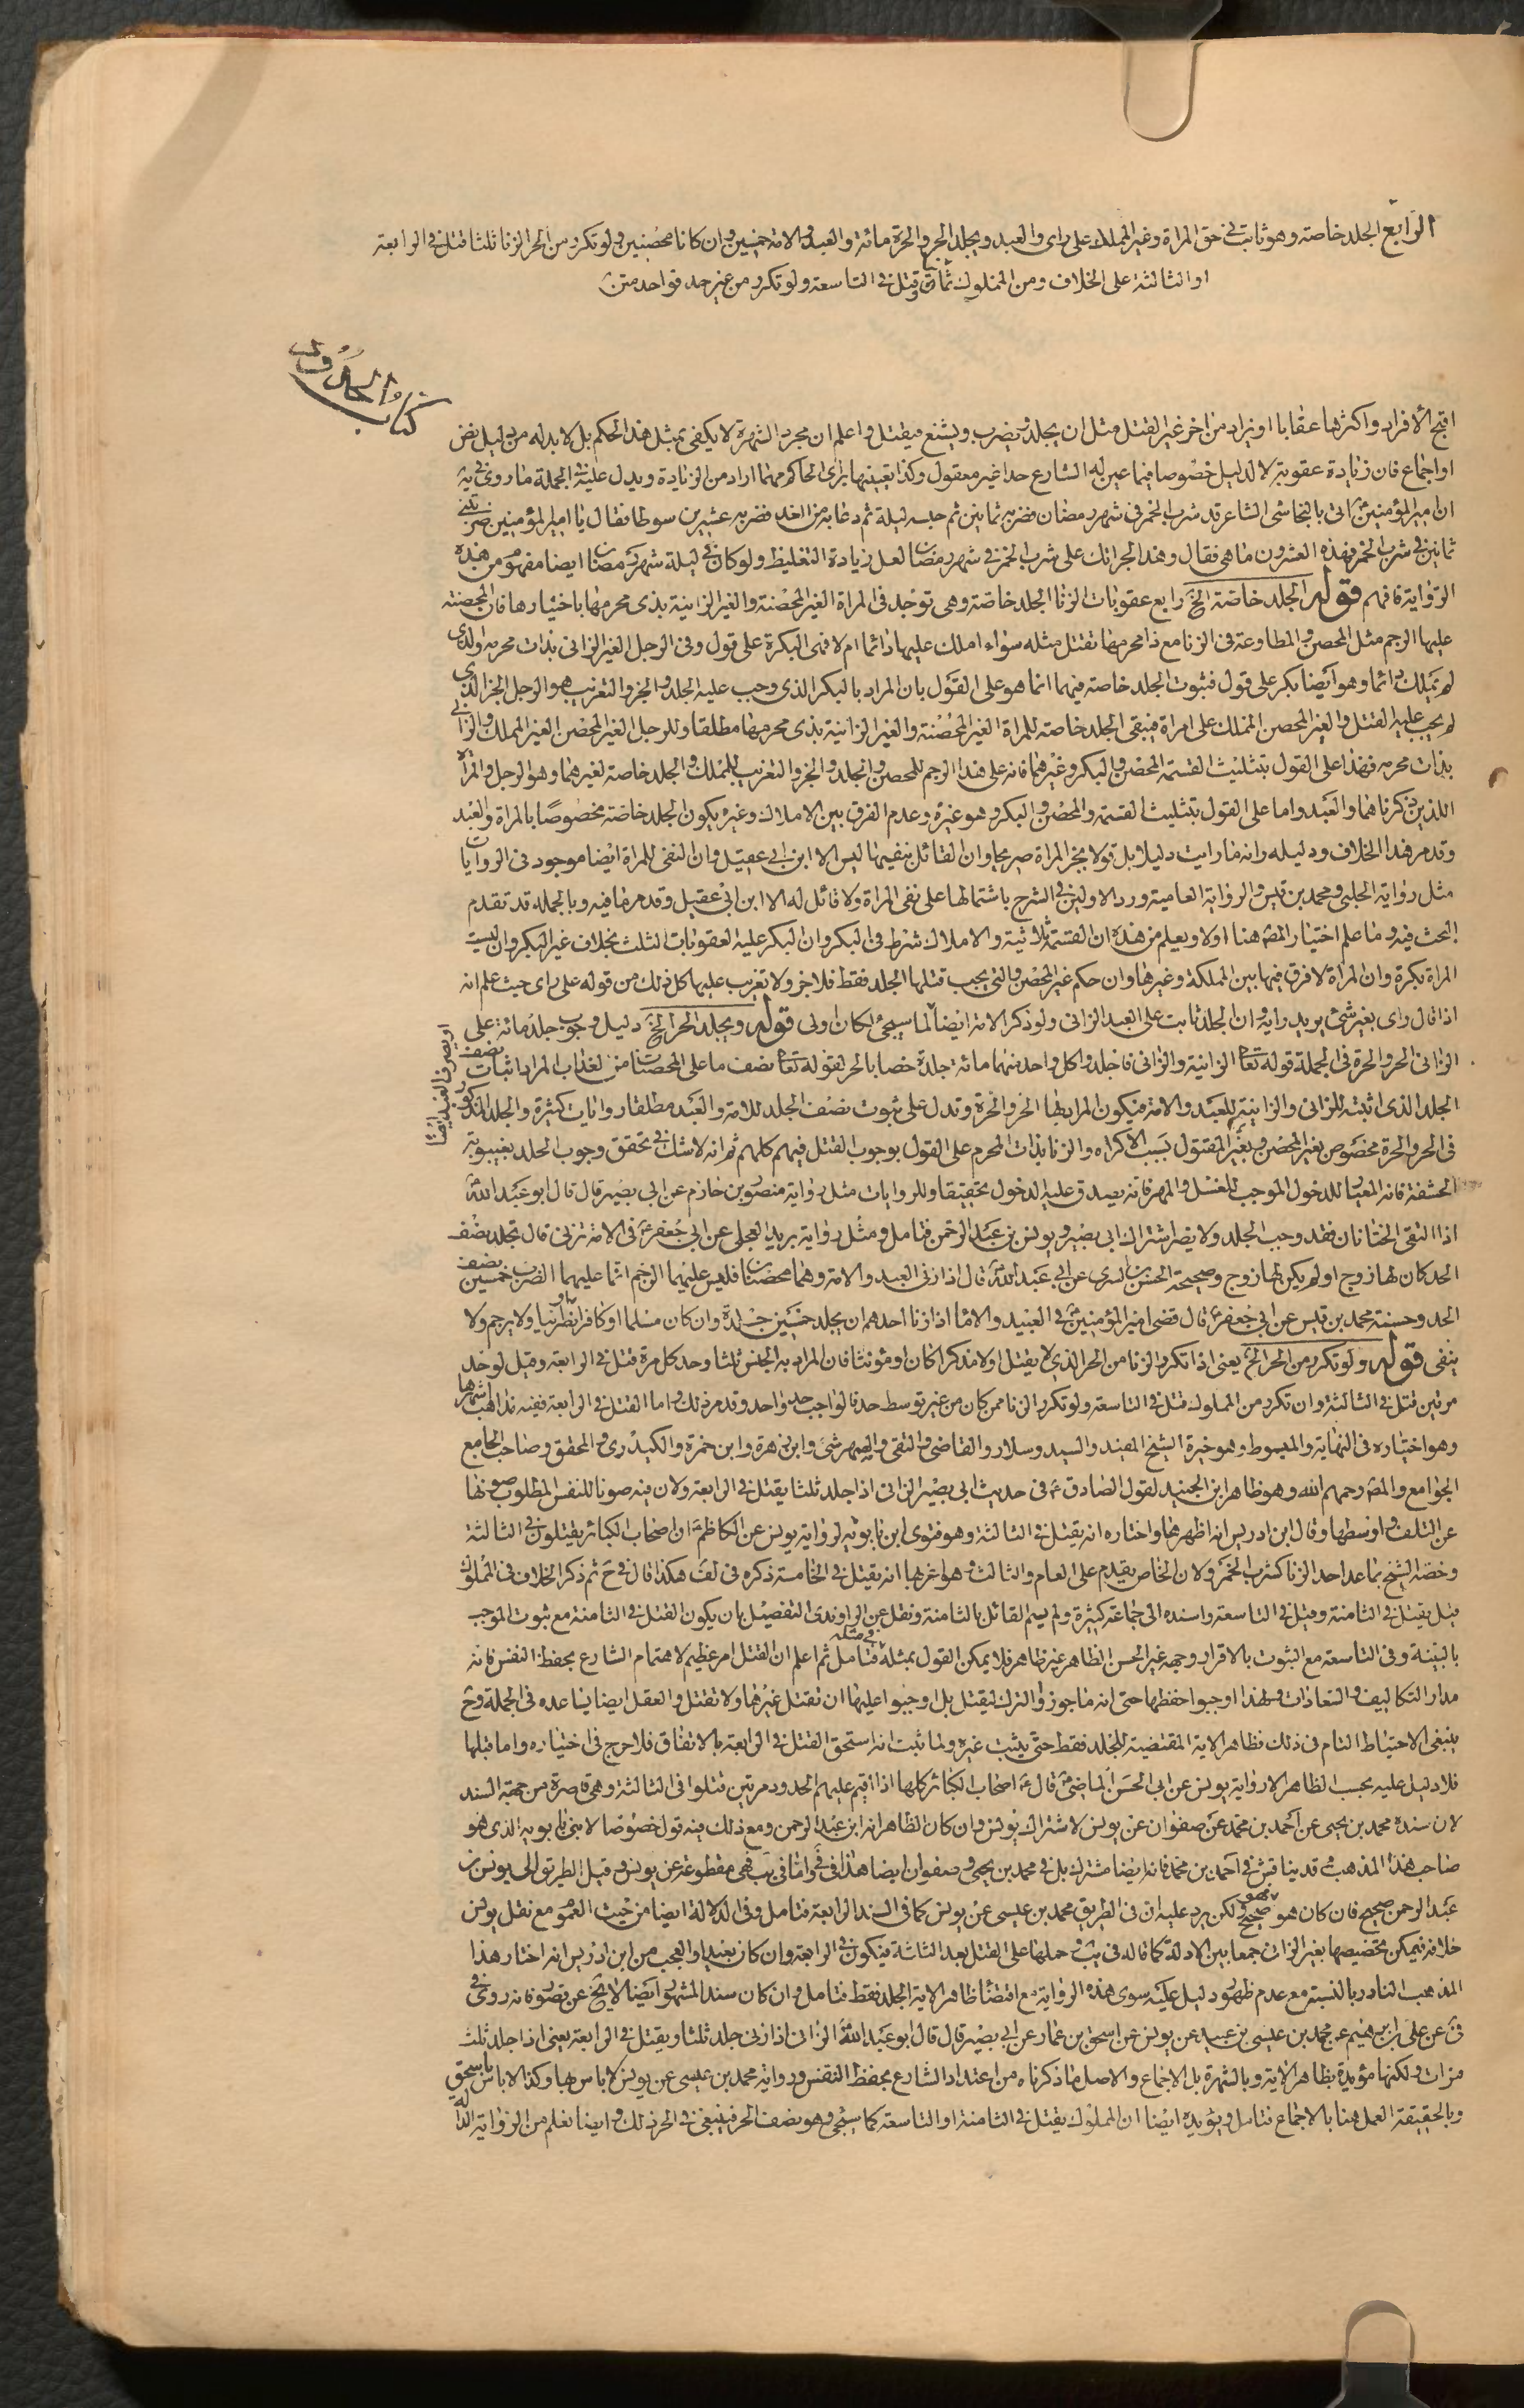 الرابع الجلد خاصة وهو ثابت في حق المراة وغير المملك على راى والعبد ويجلد الحر والحرة مائة والعبد والامة خمسين وان كانا محصنين ولو تكرر من الحر الزنا ثلثا قتل في الرابعة
او الثالثة على الخلاف ومن المملوك ثمان وقتل في التاسعة ولو تكرر من غير حد فواحد متن
كتاب الحدود
اقبح الافراد واكثرها عقابا او يزاد من اخر غير القتل مثل ان يجلد ويضرب ويشنع فيقتل واعلم ان مجرد الشهرة لا يكفى بمثل هذا الحكم بل لا بد له من دليل نص
او اجماع فان زيادة عقوبة لا لدليل خصوصا فيما عين له الشارع حدا غير معقول وكذا تعيينها براى الحاكم مهما اراد من الزيادة ويدل عليه في الجملة ما روى في يه
ان امير المؤمنين ع اتى بالنجاشى الشاعر قد شرب الخمر في شهر رمضان فضربه ثمانين ثم حبسه ليلة ثم دعا به من الغد فضربه عشرين سوطا فقال يا امير المؤمنين ضربتنى
ثمانين في شرب الخمر فهذه العشرون ما هى فقال وهذا لجراتك على شرب الخمر في شهر رمضان لعل زيادة التغليظ ولو كان في ليلة شهر رمضان ايضا مفهوم من هذه
الرواية فافهم قوله الجلد خاصة الخ رابع عقوبات الزنا الجلد خاصة وهى توجد في المراة الغير المحصنة والغير الزانية بذى محرمها باختيارها فان المحصنة
عليها الرجم مثل المحصن والمطاوعة في الزنا مع ذا محرمها تقتل مثله سواء املك عليها دائما ام لا فهى البكرة على قول وفى الرجل الغير الزانى بذات محرمه ولذى
لم يملك دائما وهو ايضا بكر على قول فثبوت الجلد خاصة فيهما انما هو على القول بان المراد بالبكر الذى وجب عليه الجلد والجز والتغريب هو الرجل الحر الذى
لم يجب عليه القتل والغير المحصن المملك على امراة فيبقى الجلد خاصة للمراة الغير المحصنة والغير الزانية بذى محرمها مطلقا وللرجل الغير المحصن الغير المملك والزانى
بذات محرمه فهذا على القول بتثليث القسمة المحصن والبكر وغيرهما فانه على هذا الرجم للمحصن والجلد والجز والتغريب للمملك والجلد خاصة لغيرهما وهو الرجل والمراة
اللذين ذكرناهما والعبد واما على القول بتثليث القسمة والمحصن والبكر وهو غيره وعدم الفرق بين الاملاك وغيره يكون الجلد خاصة مخصوصا بالمراة والعبد
وقد مر هذا الخلاف ودليله وانه ما رايت دليلا بل قولا بجز المراة صريحا وان القائل بنفيها ليس الا ابن ابى عقيل وان النفى للمراة ايضا موجود في الروايات
مثل رواية الحلبى ومحمد بن قيس والرواية العامية ورد الاولين في الشرح باشتمالها على نفى المراة ولا قائل له الا ابن ابى عقيل وقد مر ما فيه وبالجملة قد تقدم
البحث فيه وما علم اختيار المصه هنا اولا ويعلم من هذه ان القسمة ثلاثية والاملاك شرط في البكر وان البكر عليه العقوبات الثلث بخلاف غير البكر وان ليست
المراة بكرة وان المراة لا فرق فيها بين المملكة وغيرها وان حكم غير المحصن والتى يجب قتلها الجلد فقط فلا جز ولا تغريب عليها كل ذلك من قوله على راى حيث علم انه
اذا قال راى بغير شئ يريد رايه وان الجلد ثابت على العبد الزانى ولو ذكر الامة ايضا لما سيجئ لكان اولى قوله ويجلد الحر الخ دليل وجوب جلد مائة على
الزانى الحر والحرة في الجملة قوله تعا الزانية والزانى فاجلدوا كل واحد منهما مائة جلدة خصا بالحر لقوله تعا نصف ما على المحصنات من العذاب المراد اثبات نصف
الجلد الذى اثبته للزانى والزانية للعبد والامة فيكون المراد بها الحر والحرة وتدل على ثبوت نصف الجلد للامة والعبد مطلقا روايات كثيرة والجلد المذكور
في الحر والحرة مخصوص بغير المحصن وبغير المقتول بسبب الاكراه والزنا بذات المحرم على القول بوجوب القتل فيهم كلهم ثم انه لا شك في تحقق وجوب الجلد بغيبوبة
الحشفة فانه المعيار للدخول الموجب للغسل والمهر فانه يصدق عليه الدخول تحقيقا وللروايات مثل رواية منصور بن حازم عن ابى بصير قال قال ابو عبد الله ع
اذا التقى الختانان فقد وجب الجلد ولا يضر اشتراك ابى بصير ويونس بن عبد الرحمن فتامل ومثل رواية بريد العجلى عن ابى جعفر ع في الامة تزنى قال تجلد نصف
الحد كان لها زوج او لم يكن لها زوج وصحيحة الحسن بن السرى عن ابى عبد الله ع قال اذا زنى العبد والامة وهما محصنان فليس عليهما الرجم انما عليهما الضرب خمسين نصف
الحد وحسنة محمد بن قيس عن ابى جعفر ع قال قضى امير المؤمنين ع في العبيد والاماء اذا زنا احدهم ان يجلد خمسين جلدة وان كان مسلما او كافرا او نصرانيا ولا يرجم ولا
ينفى قوله ولو تكرر من الحر الخ يعنى اذا تكرر الزنا من الحر الذى لا يقتل اولا مذكرا كان او مؤنثا فان المراد به الجنس ثلثا وحد كل مرة قتل في الرابعة وقيل لو حد
مرتين قتل في الثالثة وان تكرر من المملوك قتل في التاسعة ولو تكرر الزنا ممن كان من غير توسط حد فالواجب حد واحد وقد مر ذلك واما القتل في الرابعة ففيه مذاهب اشهرها
وهو اختياره في النهاية والمبسوط وهو خيرة الشيخ المفيد والسيد وسلار والقاضى والتقى والصهرشتى وابن زهرة وابن حمزة والكيدرى والمحقق وصاحب الجامع
الجوامع والمصه رحمهم الله وهو ظاهر ابن الجنيد لقول الصادق ع في حديث ابى بصير الزانى اذا جلد ثلثا يقتل في الرابعة ولان فيه صونا للنفس المطلوب صونها
عن التلف واوسطها وقال ابن ادريس انه اظهرها واختاره انه يقتل في الثالثة وهو فتوى ابن بابويه لرواية يونس عن الكاظم ع ان اصحاب الكبائر يقتلون في الثالثة
وخصه الشيخ بما عدا حد الزنا كشرب الخمر ولان الخاص يقدم على العام والثالث وهو اغربها انه يقتل في الخامسة ذكره في لف هكذا قال في ح ثم ذكر الخلاف في المملوك
قيل يقتل في الثامنة وقيل في التاسعة واسنده الى جماعة كثيرة ولم يسم القائل بالثامنة ونقل عن الراوندى التفصيل بان يكون القتل في الثامنة مع ثبوت الموجب
بالبينة وفى التاسعة مع الثبوت بالاقرار وجهه غير الحسن الظاهر غير ظاهر فلا يمكن القول بمثله في مثله فتامل ثم اعلم ان القتل امر عظيم لاهتمام الشارع بحفظ النفس فانه
مدار التكاليف والسعادات ولهذا اوجبوا حفظها حتى انه ما جوزوا الترك ليقتل بل اوجبوا عليها ان تقتل غيرها ولا تقتل والعقل ايضا يساعده في الجملة وح
ينبغى الاحتياط التام في ذلك فظاهر الاية المقتضية للجلد فقط حتى يثبت غيره ولما ثبت انه استحق القتل في الرابعة بالاتفاق فلا حرج في اختياره واما قبلها
فلا دليل عليه بحسب الظاهر الا رواية يونس عن ابى الحسن الماضى ع قال ع اصحاب الكبائر كلها اذا اقيم عليهم الحدود مرتين قتلوا في الثالثة وهى قاصرة من جهة السند
لان سنده محمد بن يحيى عن احمد بن محمد عن صفوان عن يونس لاشتراك يونس وان كان الظاهر انه ابن عبد الرحمن ومع ذلك فيه قول خصوصا لابنى بابويه الذى هو
صاحب هذا المذهب وقد يناقش في احمد بن محمد فانه ايضا مشترك بل في محمد بن يحيى وصفوان ايضا هذا في في واما في يب فهى مقطوعة عن يونس وقبل الطريق الى يونس بن
عبد الرحمن صحيح فان كان هو فهو صحيح ولكن يرد عليه ان في الطريق محمد بن عيسى عن يونس كما في السند الرابعة فتامل وفى الدلالة ايضا من حيث العموم مع نقل يونس
خلافه فيمكن تخصيصها بغير الزانى جمعا بين الادلة كما قاله في يب وحملها على القتل بعد الثالثة فيكون في الرابعة وان كان بعيدا والعجب من ابن ادريس انه اختار هذا
المذهب النادر بالنسبة مع عدم ظهور دليل عليه سوى هذه الرواية مع اقتضاء ظاهر الاية الجلد فقط فتامل وان كان سند المشهور ايضا لا يخ عن قصور فانه روى في
في عن على بن ابرهيم عن محمد بن عيسى بن عبيد عن يونس عن اسحق بن عمار عن ابى بصير قال قال ابو عبد الله ع الزانى اذا زنى جلد ثلثا ويقتل في الرابعة يعنى اذا جلد ثلث
مرات ولكنها مؤيدة بظاهر الاية وبالشهرة بل الاجماع والاصل وما ذكرناه من اعتداد الشارع بحفظ النفس ورواية محمد بن عيسى عن يونس لا باس بها وكذا لا باس باسحق
وبالحقيقة العمل هنا بالاجماع فتامل ويؤيده ايضا ان المملوك يقتل في الثامنة او التاسعة كما سيجئ وهو نصف الحر فينبغى في الحر ذلك وايضا نعلم من الرواية الدالة